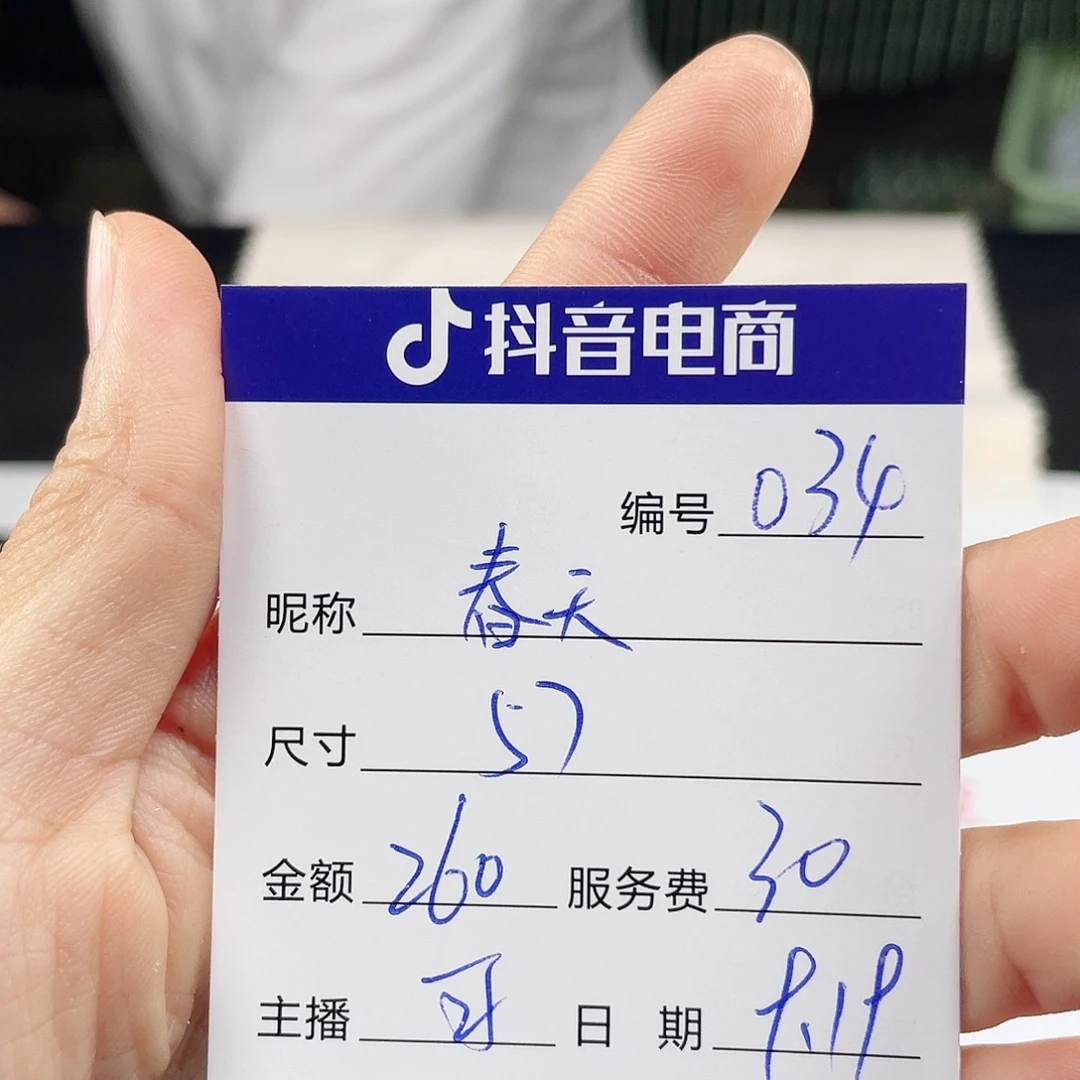 抖音电商
编号 034
昵称 春天
尺寸 57
金额 260 服务费 30
主播 日期 9.19